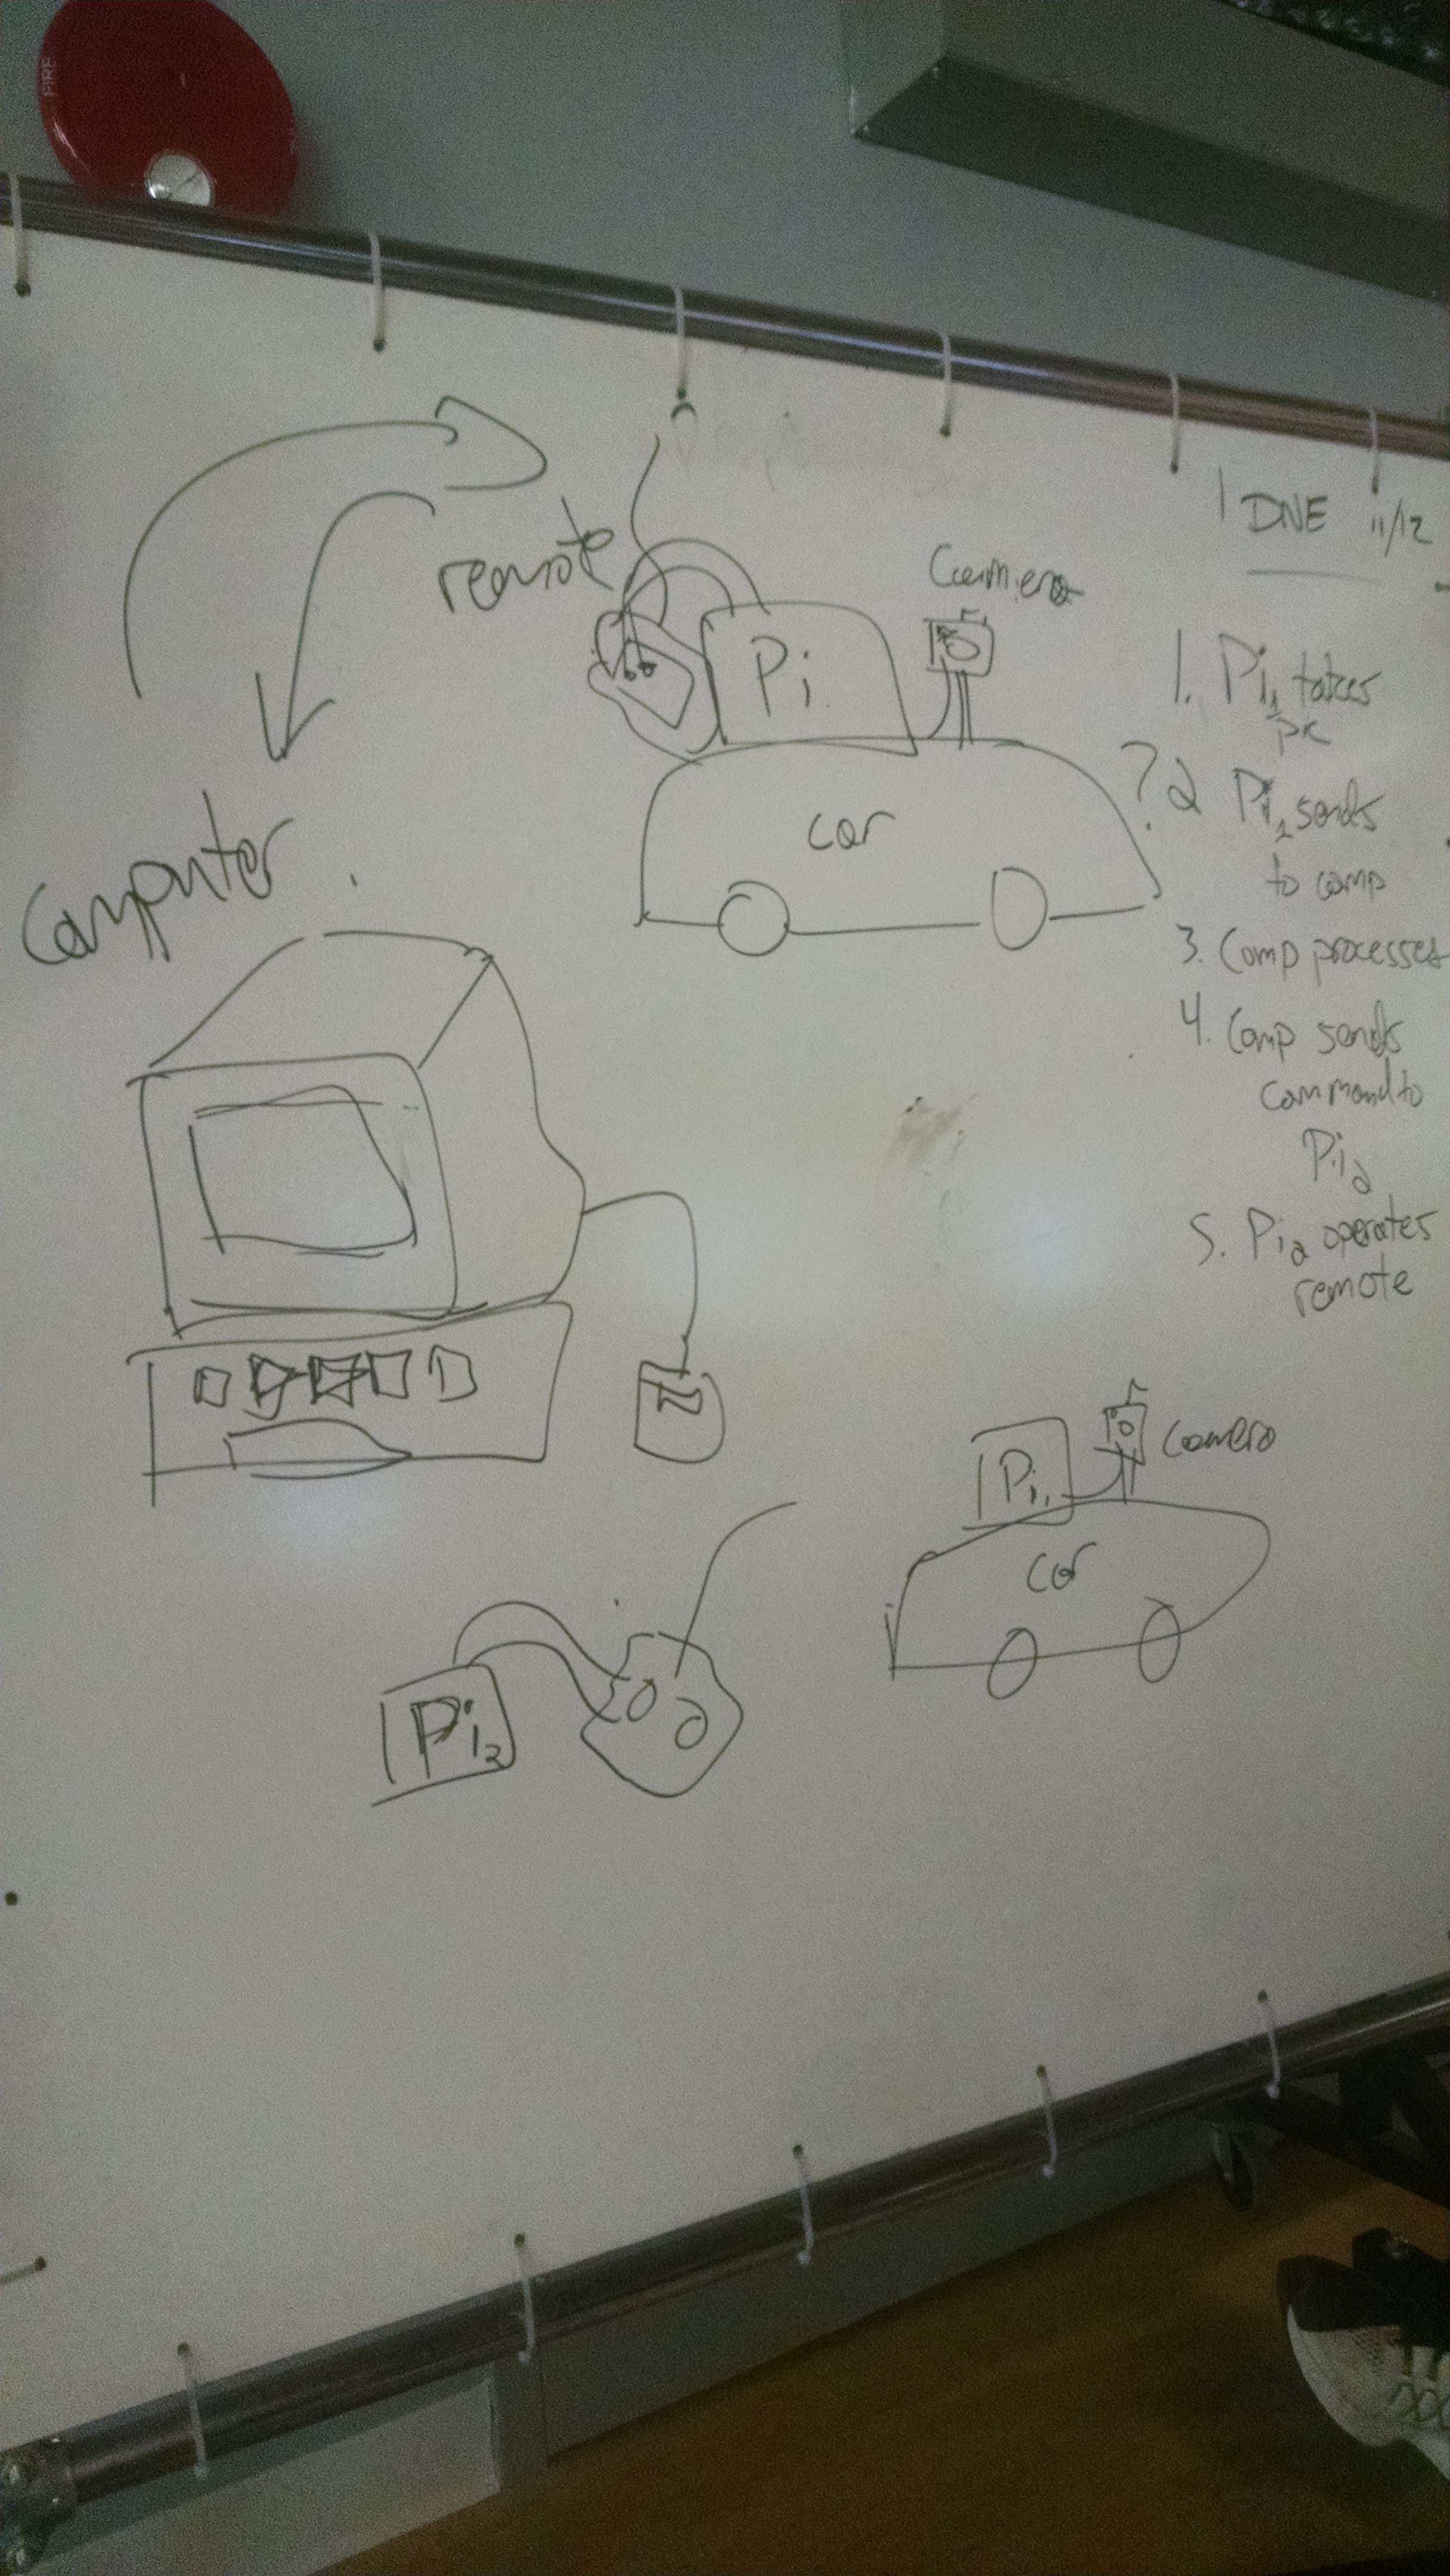 FIRE
DNE 11/12
remote
Camera
Pi
car
Computer
1. Pi1 takes
pic
? 2 Pi1 sends
to comp
3. Comp processes
4. Comp sends
command to
Pi2
5. Pi2 operates
remote
Pi1
Camera
car
Pi2